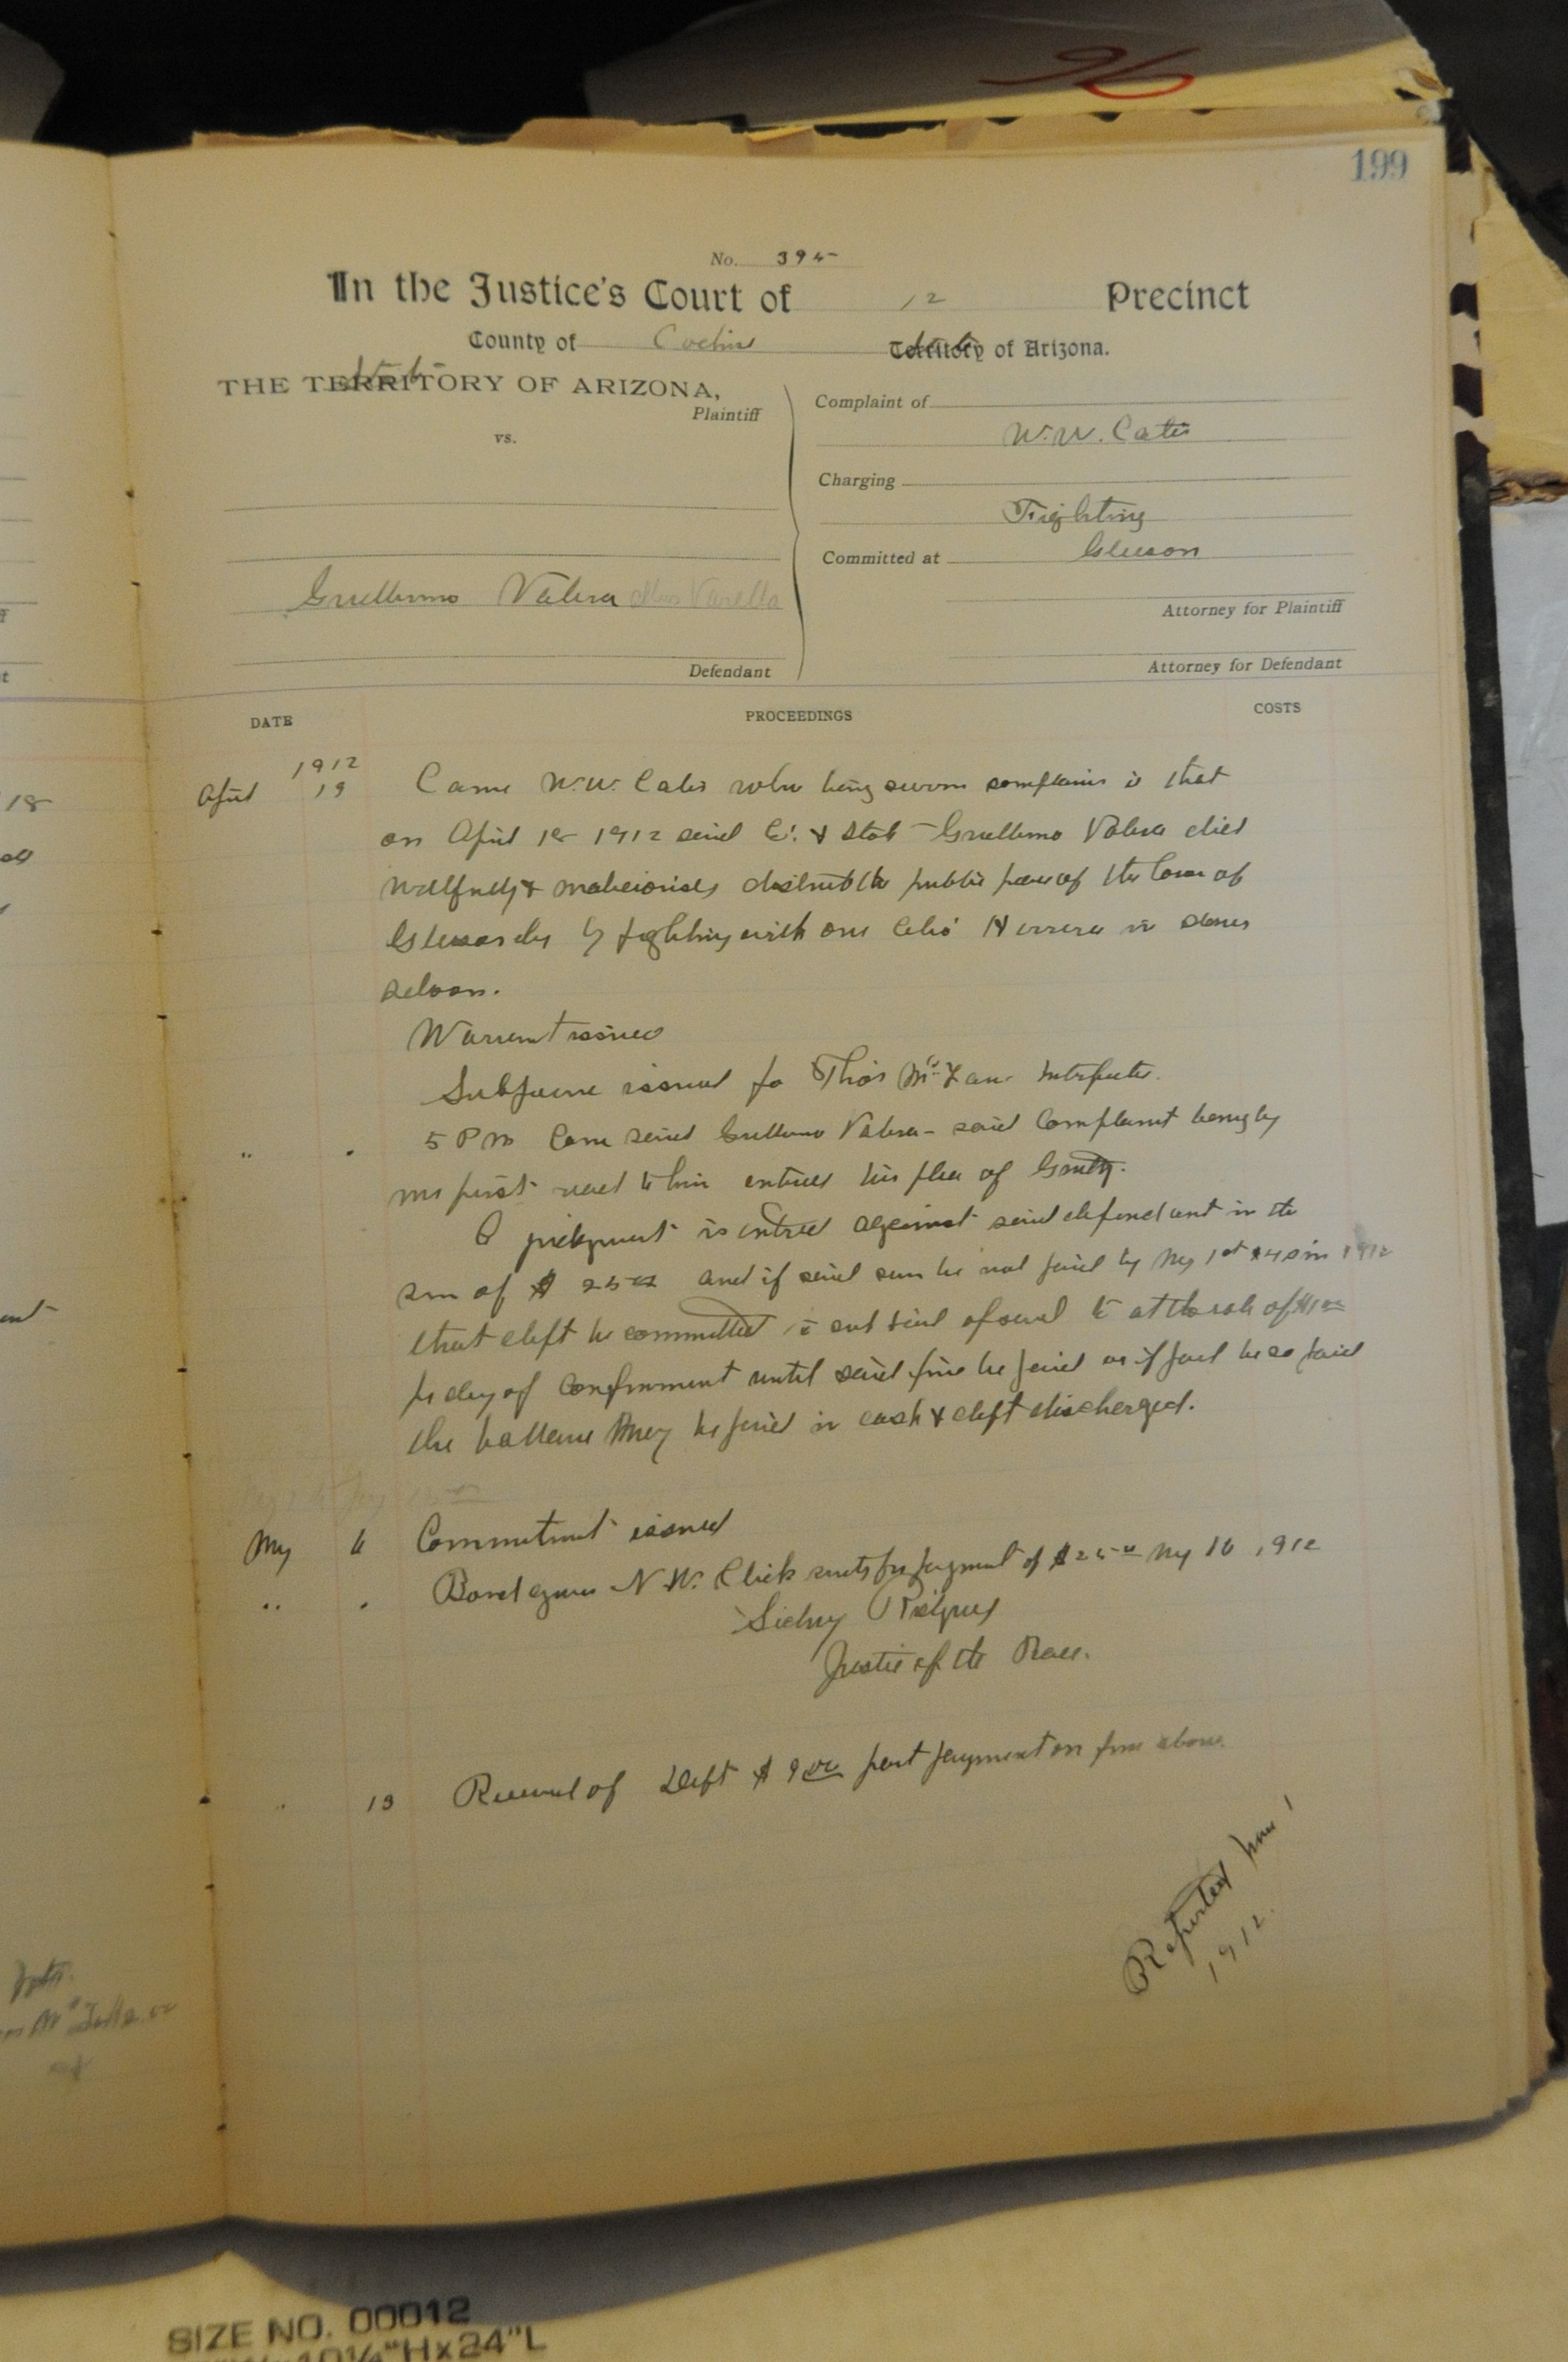 96
199
No. 395
In the Justice's Court of 12 Precinct
County of Cochise Territory of Arizona.
State
THE TERRITORY OF ARIZONA,
Plaintiff
vs.
Guellermo Valera alias Varella
Defendant
Complaint of
W.W. Cates
Charging
Fighting
Committed at Gleeson
Attorney for Plaintiff
Attorney for Defendant
DATE PROCEEDINGS COSTS
1912
April 19 Came W.W. Cates who being sworn complains that
on April 18 1912 said Co. & State Guellermo Valera did
willfully & maliciously disturb the public peace of the town of
Gleeson by fighting with one Herrera in
saloon.
Warrant issued
Subpoena issued for Thos Interpreter.
" " 5 PM Came said Guellermo Valera - said Complaint being by
me first read to him enters his plea of Guilty.
A judgment is entered against said defendant in the
sum of $ 25 00 and if said sum be not paid by My 1st 1912
that deft be committed jail of said Co at the rate of $1 00
per day of confinement until said fine be paid or if part be so paid
the ballance may be paid in cash & deft discharged.
My 6 Commitment issued
" " Bond given N.W. Click surety for payment of $25 00 My 10 1912
Sidney
Justice of the Peace.
" 13 Received of Deft $ 9 00 part payment on fine above.
Reported
1912.
18
SIZE NO. 00012
10¼"Hx24"L